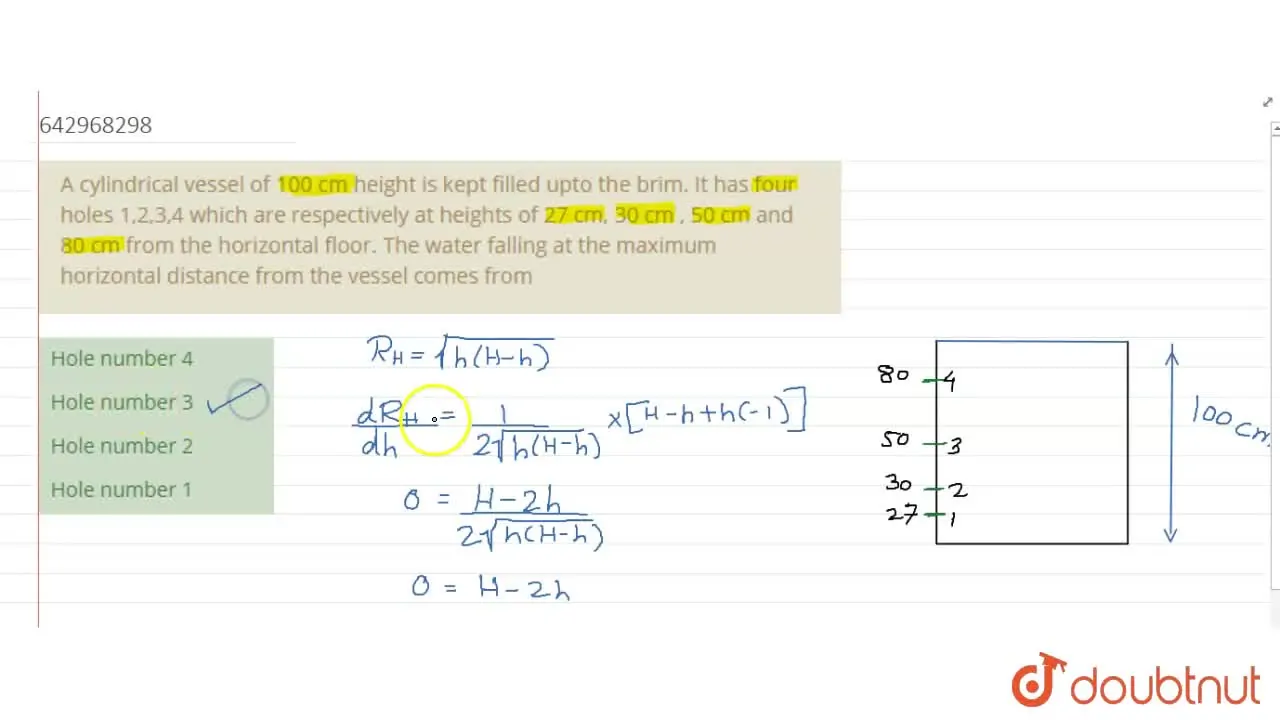 642968298
A cylindrical vessel of 100 cm height is kept filled upto the brim. It has four
holes 1,2,3,4 which are respectively at heights of 27 cm, 30 cm , 50 cm and
80 cm from the horizontal floor. The water falling at the maximum
horizontal distance from the vessel comes from
Hole number 4
Hole number 3
Hole number 2
Hole number 1
R_H = √h(H-h)
dR_H/dh = 1/2√h(H-h) × [H-h+h(-1)]
0 = H-2h/2√h(H-h)
0 = H-2h
80 4
50 3
30 2
27 1
100 cm
doubtnut